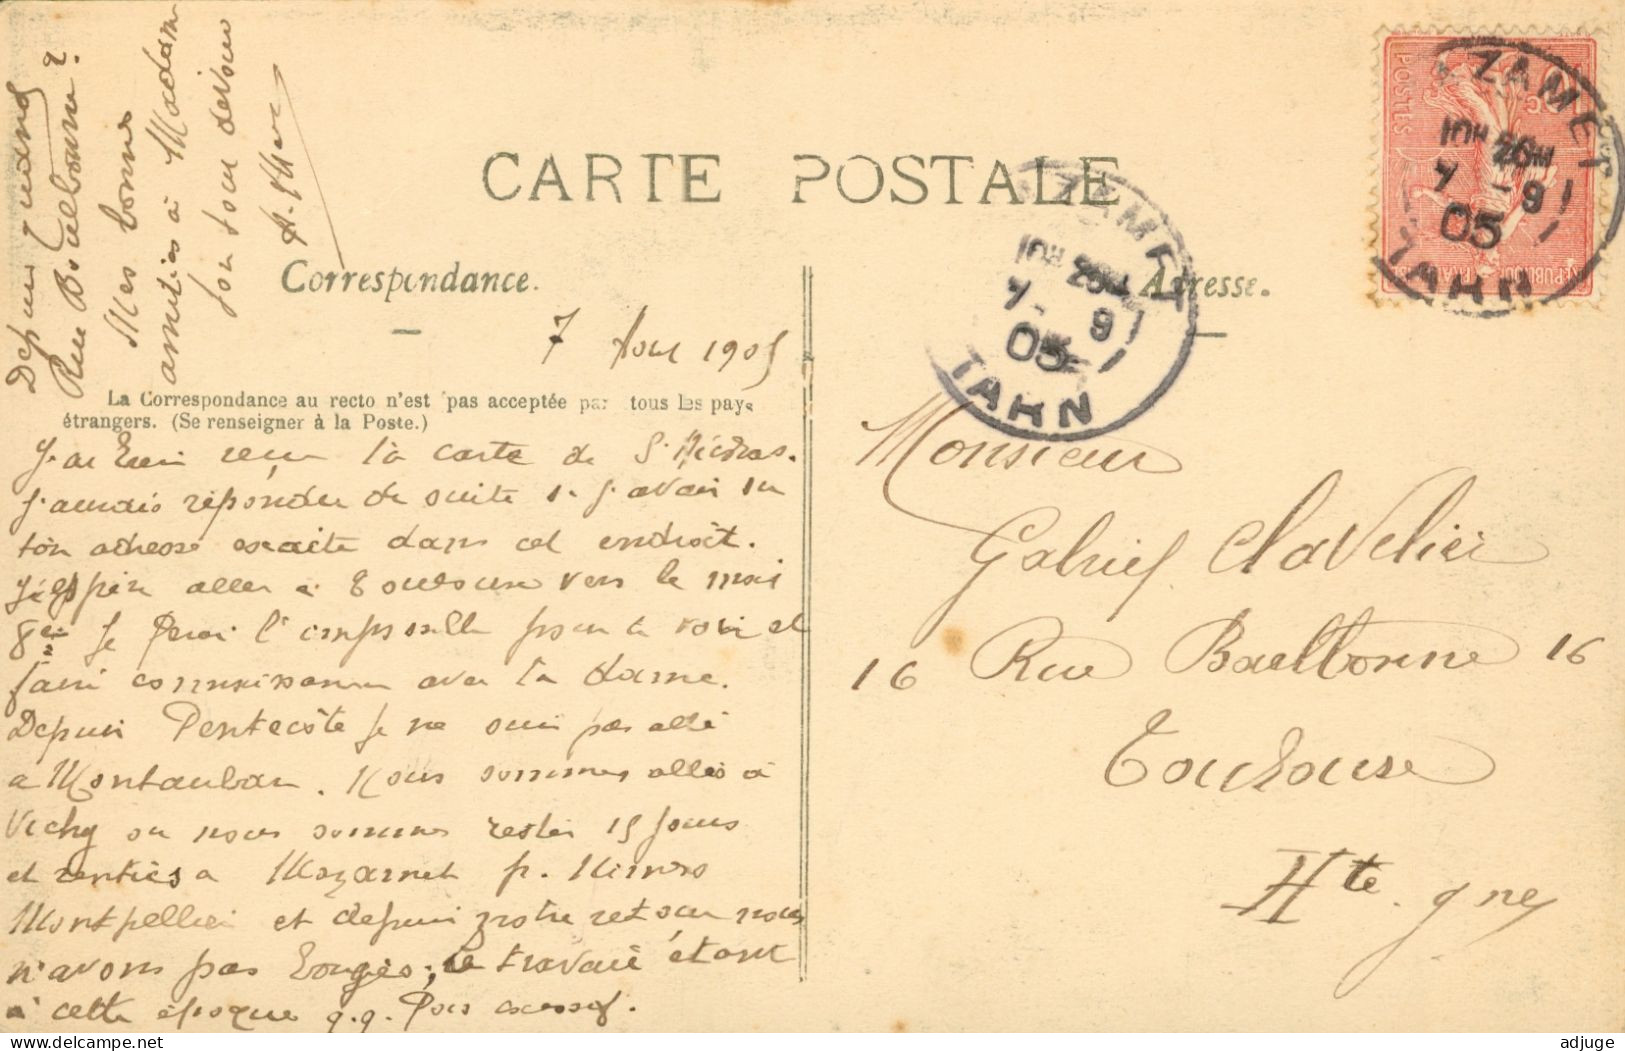 CARTE POSTALE
Correspondance.
Adresse.
La Correspondance au recto n'est pas acceptée par tous les pays
étrangers. (Se renseigner à la Poste.)
7 Aout 1905
J'ai bien reçu ta carte de St Nicolas.
J'aurais répondu de suite si j'avais su
ton adresse exacte dans cet endroit.
J'espère aller à Toulouse vers le mois
8bre je ferai l'impossible pour te voir et
faire connaissance avec ta dame.
Depuis Pentecôte je ne suis pas allé
a Montauban. Nous sommes allés à
Vichy ou nous sommes restés 15 jours
et rentrés a Mazamet p. Nimes
Montpellier et depuis notre retour nous
n'avons pas bougés, le travail étant
à cette époque q.q. fois excessif.
Depuis quand
Rue Boulbonne?
Mes bonnes
amitiés à Madame
ton tout dévoué
Monsieur
Gabriel Clavelier
16 Rue Boulbonne 16
Toulouse
Hte Gne
MAZAMET
10H 20M
7 - 9
05
TARN
MAZAMET
10H 20M
7 - 9
05
TARN
POSTES
REPUBLIQUE FRANÇAISE
delcampe.net
adjuge